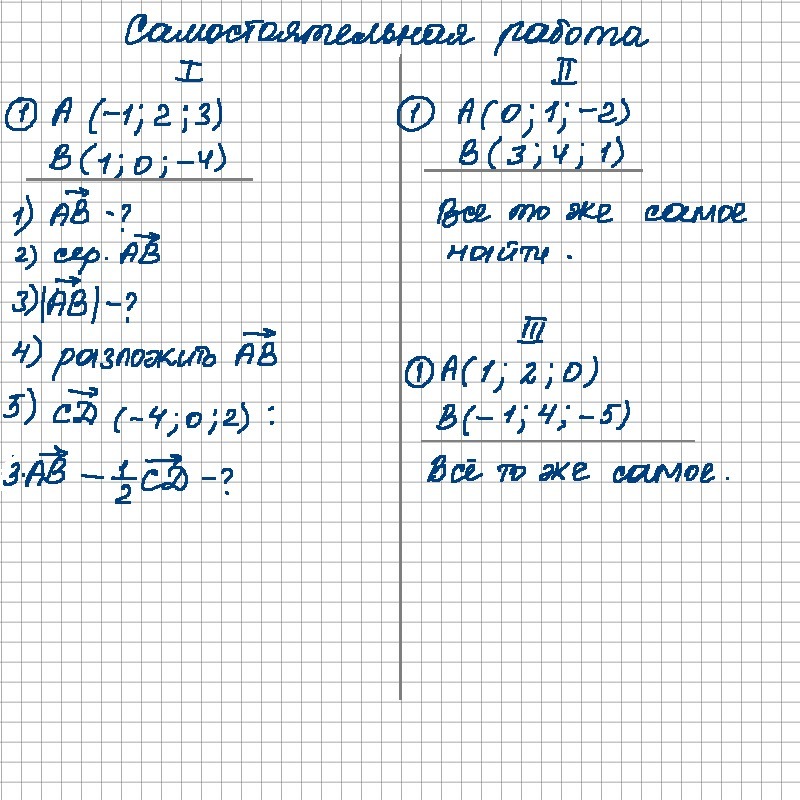 Самостоятельная работа
I
① A (-1; 2; 3)
B (1; 0; -4)
1) AB⃗ -?
2) сер. AB⃗
3) |AB⃗| -?
4) разложить AB⃗
5) CD⃗ (-4; 0; 2) :
3·AB⃗ - 1/2 CD⃗ -?
II
① A (0; 1; -2)
B (3; 4; 1)
Все то же самое
найти.
III
① A (1; 2; 0)
B (-1; 4; -5)
Всё то же самое.